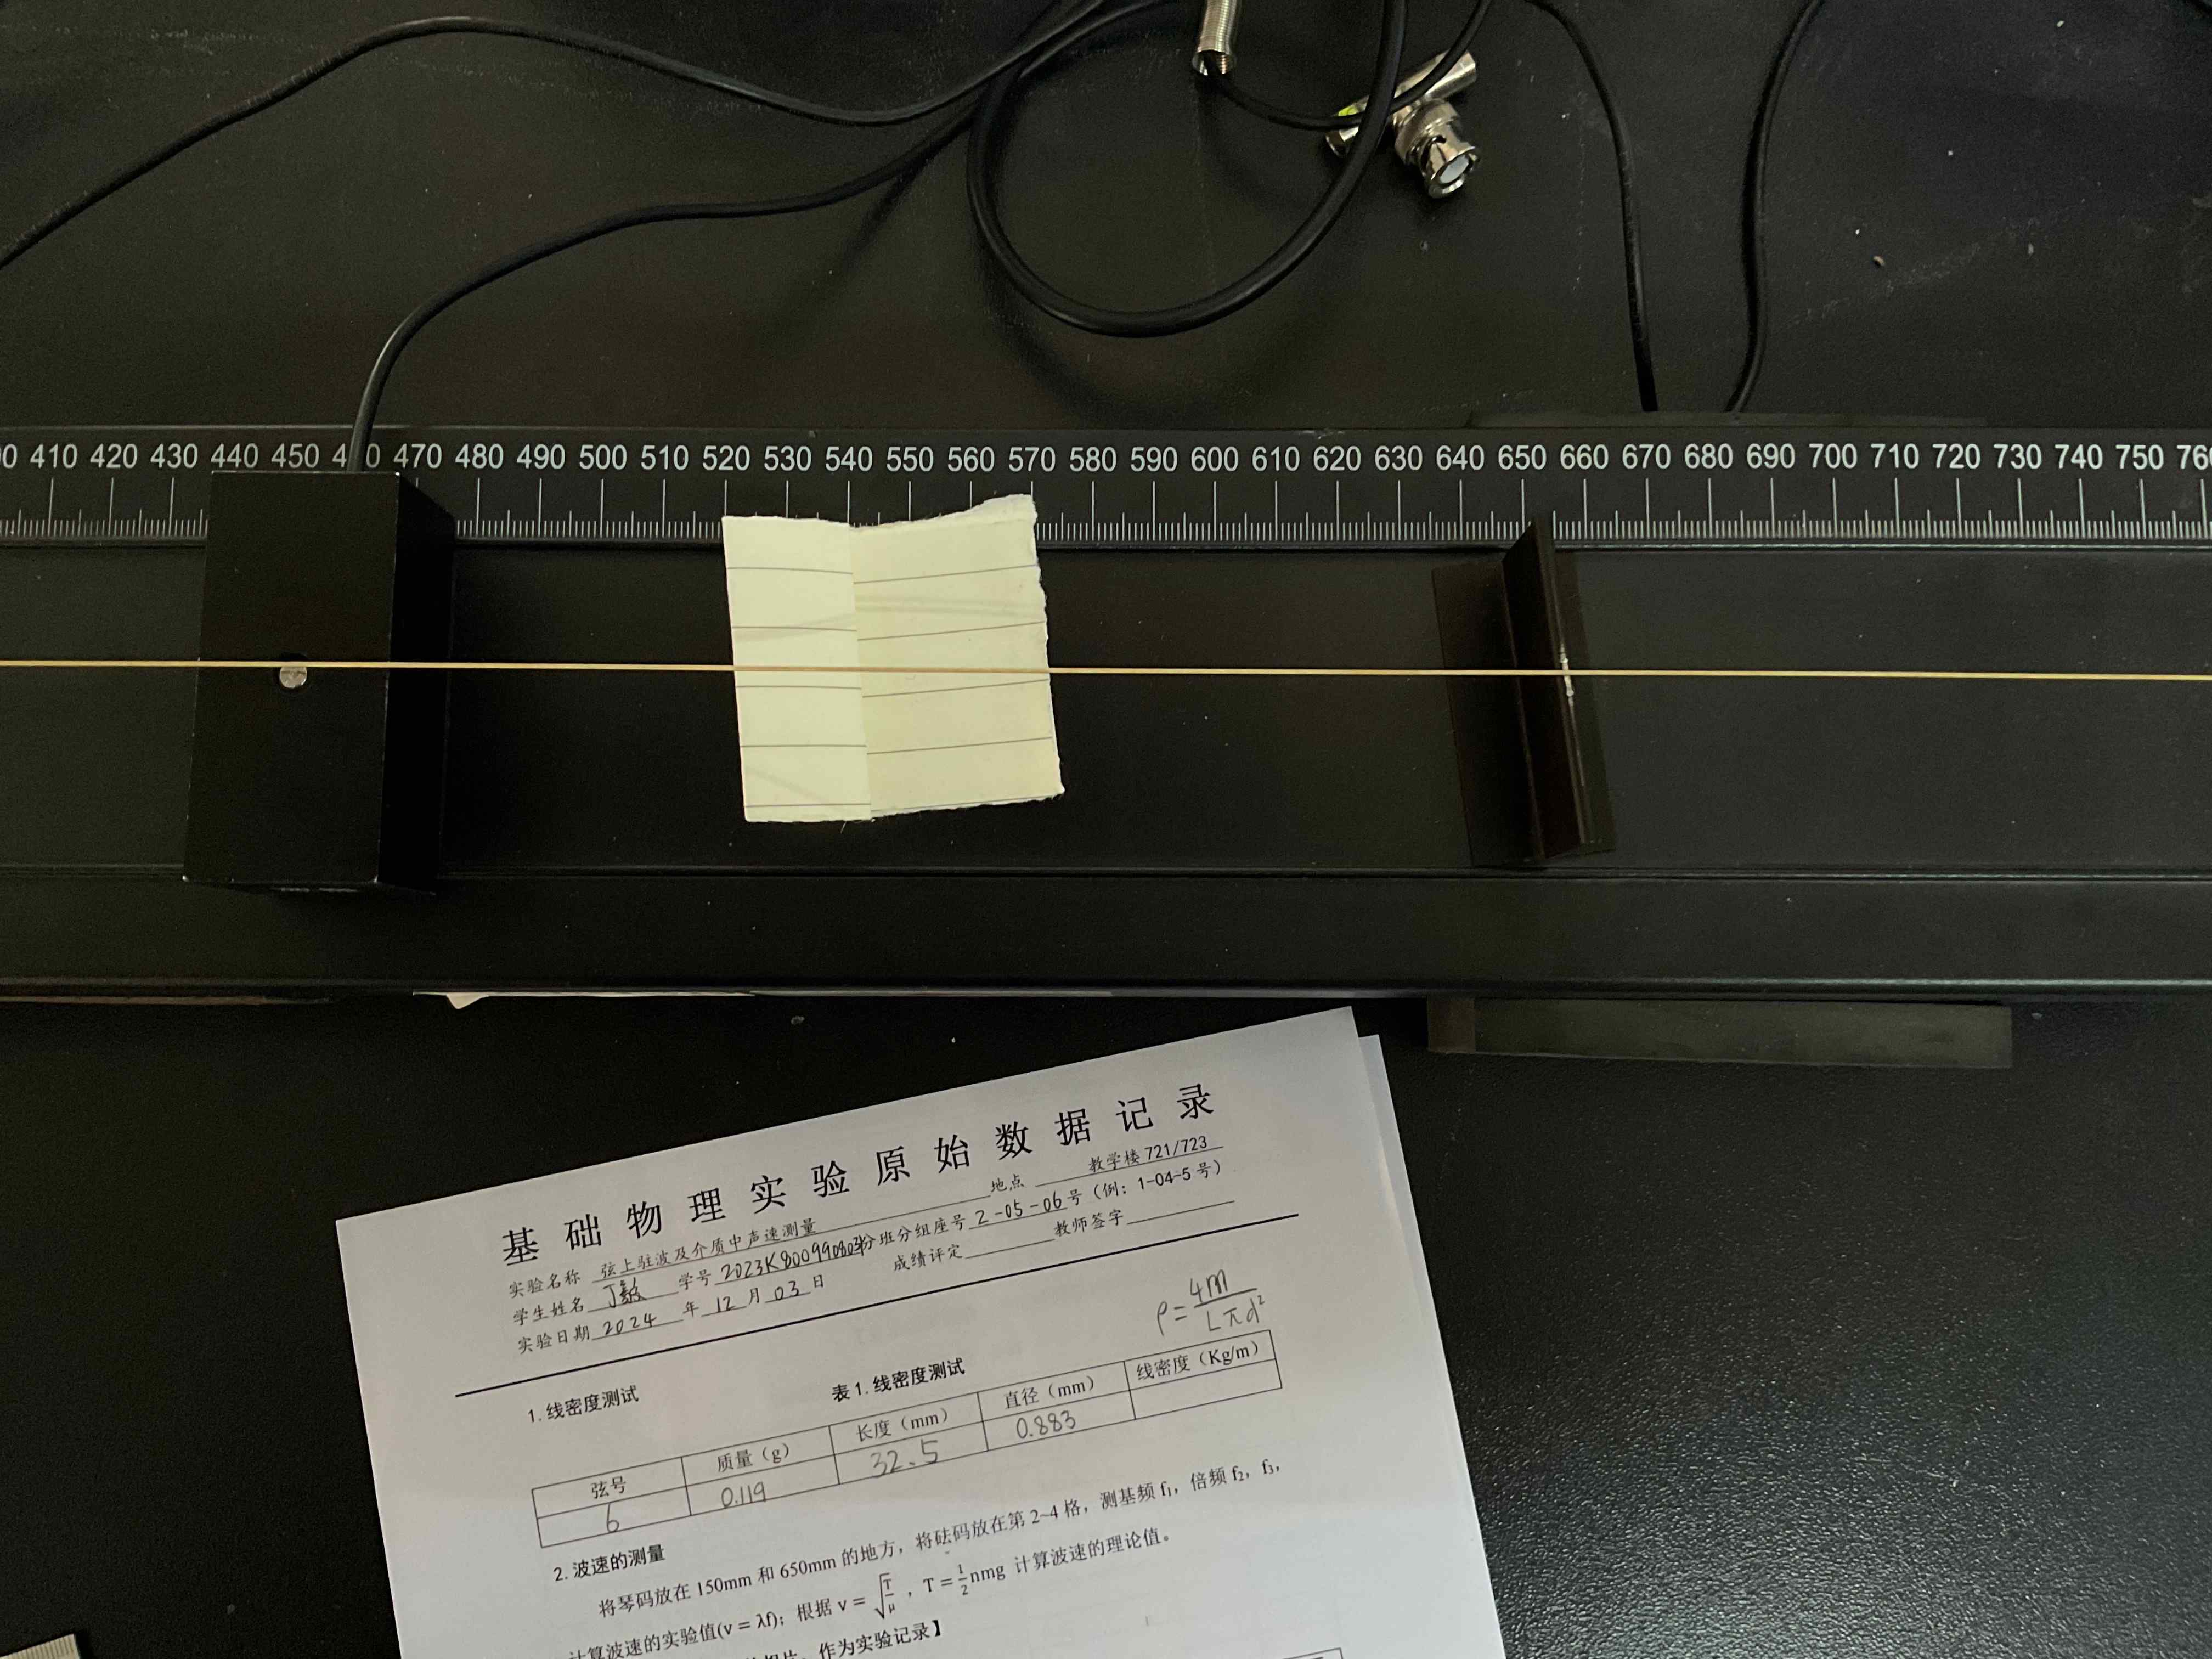 410 420 430 440 450 470 480 490 500 510 520 530 540 550 560 570 580 590 600 610 620 630 640 650 660 670 680 690 700 710 720 730 740 750
基础物理实验原始数据记录
实验名称 弦上驻波及介质中声速测量 地点 教学楼 721/723
学生姓名 丁毅 学号 分班分组座号 2-05-06 号（例：1-04-5 号）
实验日期 2024 年 12 月 03 日 成绩评定 教师签字
ρ=4m/Lπd²
1. 线密度测试
表 1. 线密度测试
弦号 质量（g） 长度（mm） 直径（mm） 线密度（Kg/m）
6 0.119 32.5 0.883
2. 波速的测量
将琴码放在 150mm 和 650mm 的地方，将砝码放在第 2~4 格，测基频 f₁，倍频 f₂，f₃，
计算波速的实验值(v = λf)；根据 v = √(T/μ)，T = ½nmg 计算波速的理论值。
作为实验记录】